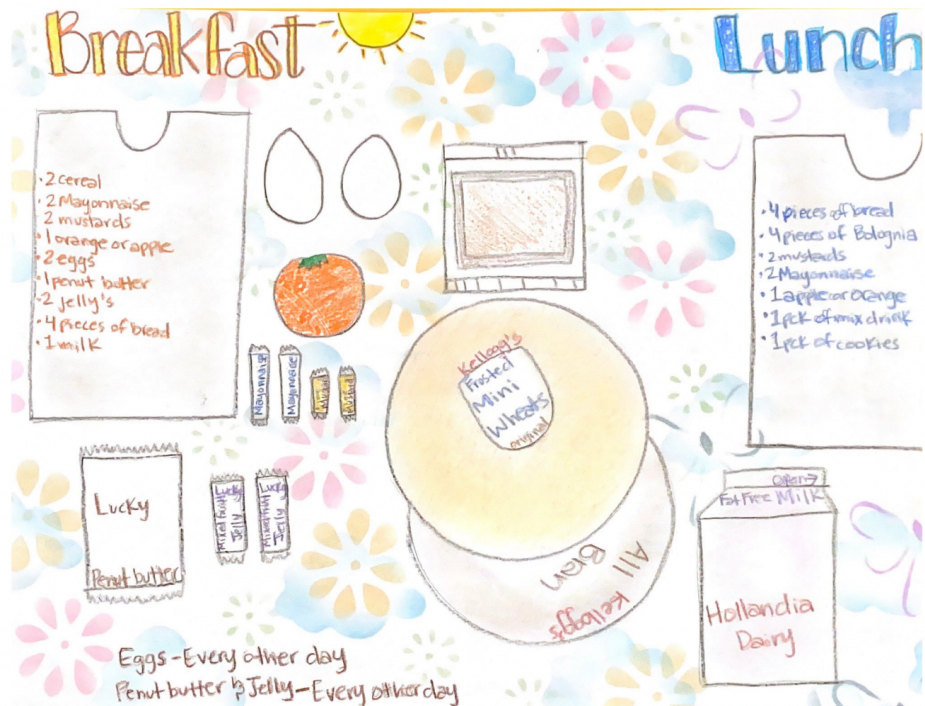 Breakfast
Lunch
• 2 cereal
• 2 Mayonnaise
2 mustards
• 1 orange or apple
• 2 eggs
1 penut butter
• 2 jelly's
• 4 pieces of bread
• 1 milk
• 4 pieces of bread
• 4 pieces of Bolognia
• 2 mustads
• 2 Mayonnaise
• 1 apple or orange
• 1 pck of mix drink
• 1 pck of cookies
Mayonnaise
Mayonnaise
Kellogg's
Frosted
Mini
Wheats
original
All
Bran
Kellogg's
Lucky
Penut butter
Lucky
Mixed fruit
Jelly
Lucky
Mixed fruit
Jelly
open→
Fat Free Milk
Hollandia
Dairy
Eggs - Every other day
Penut butter & Jelly - Every other day